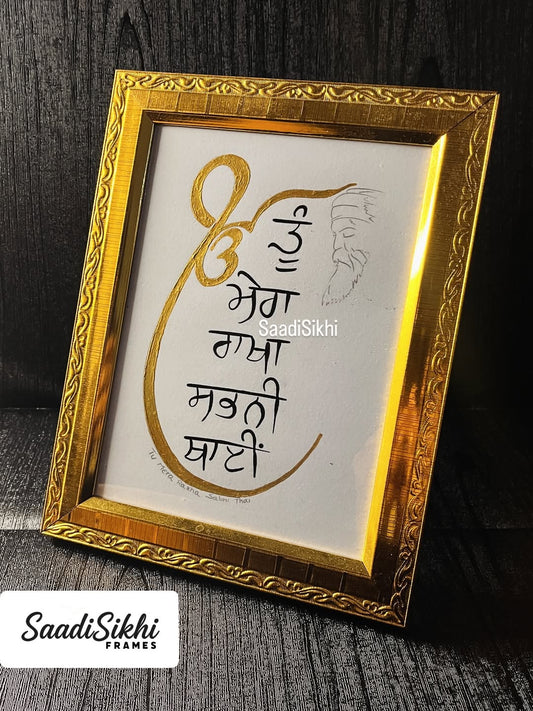 ੴ
ਤੂੰ
ਮੇਰਾ
ਰਾਖਾ
ਸਭਨੀ
ਥਾਈਂ
Tu Mera Rakha Sabni Thai
SaadiSikhi
SaadiSikhi
SaadiSikhi
FRAMES